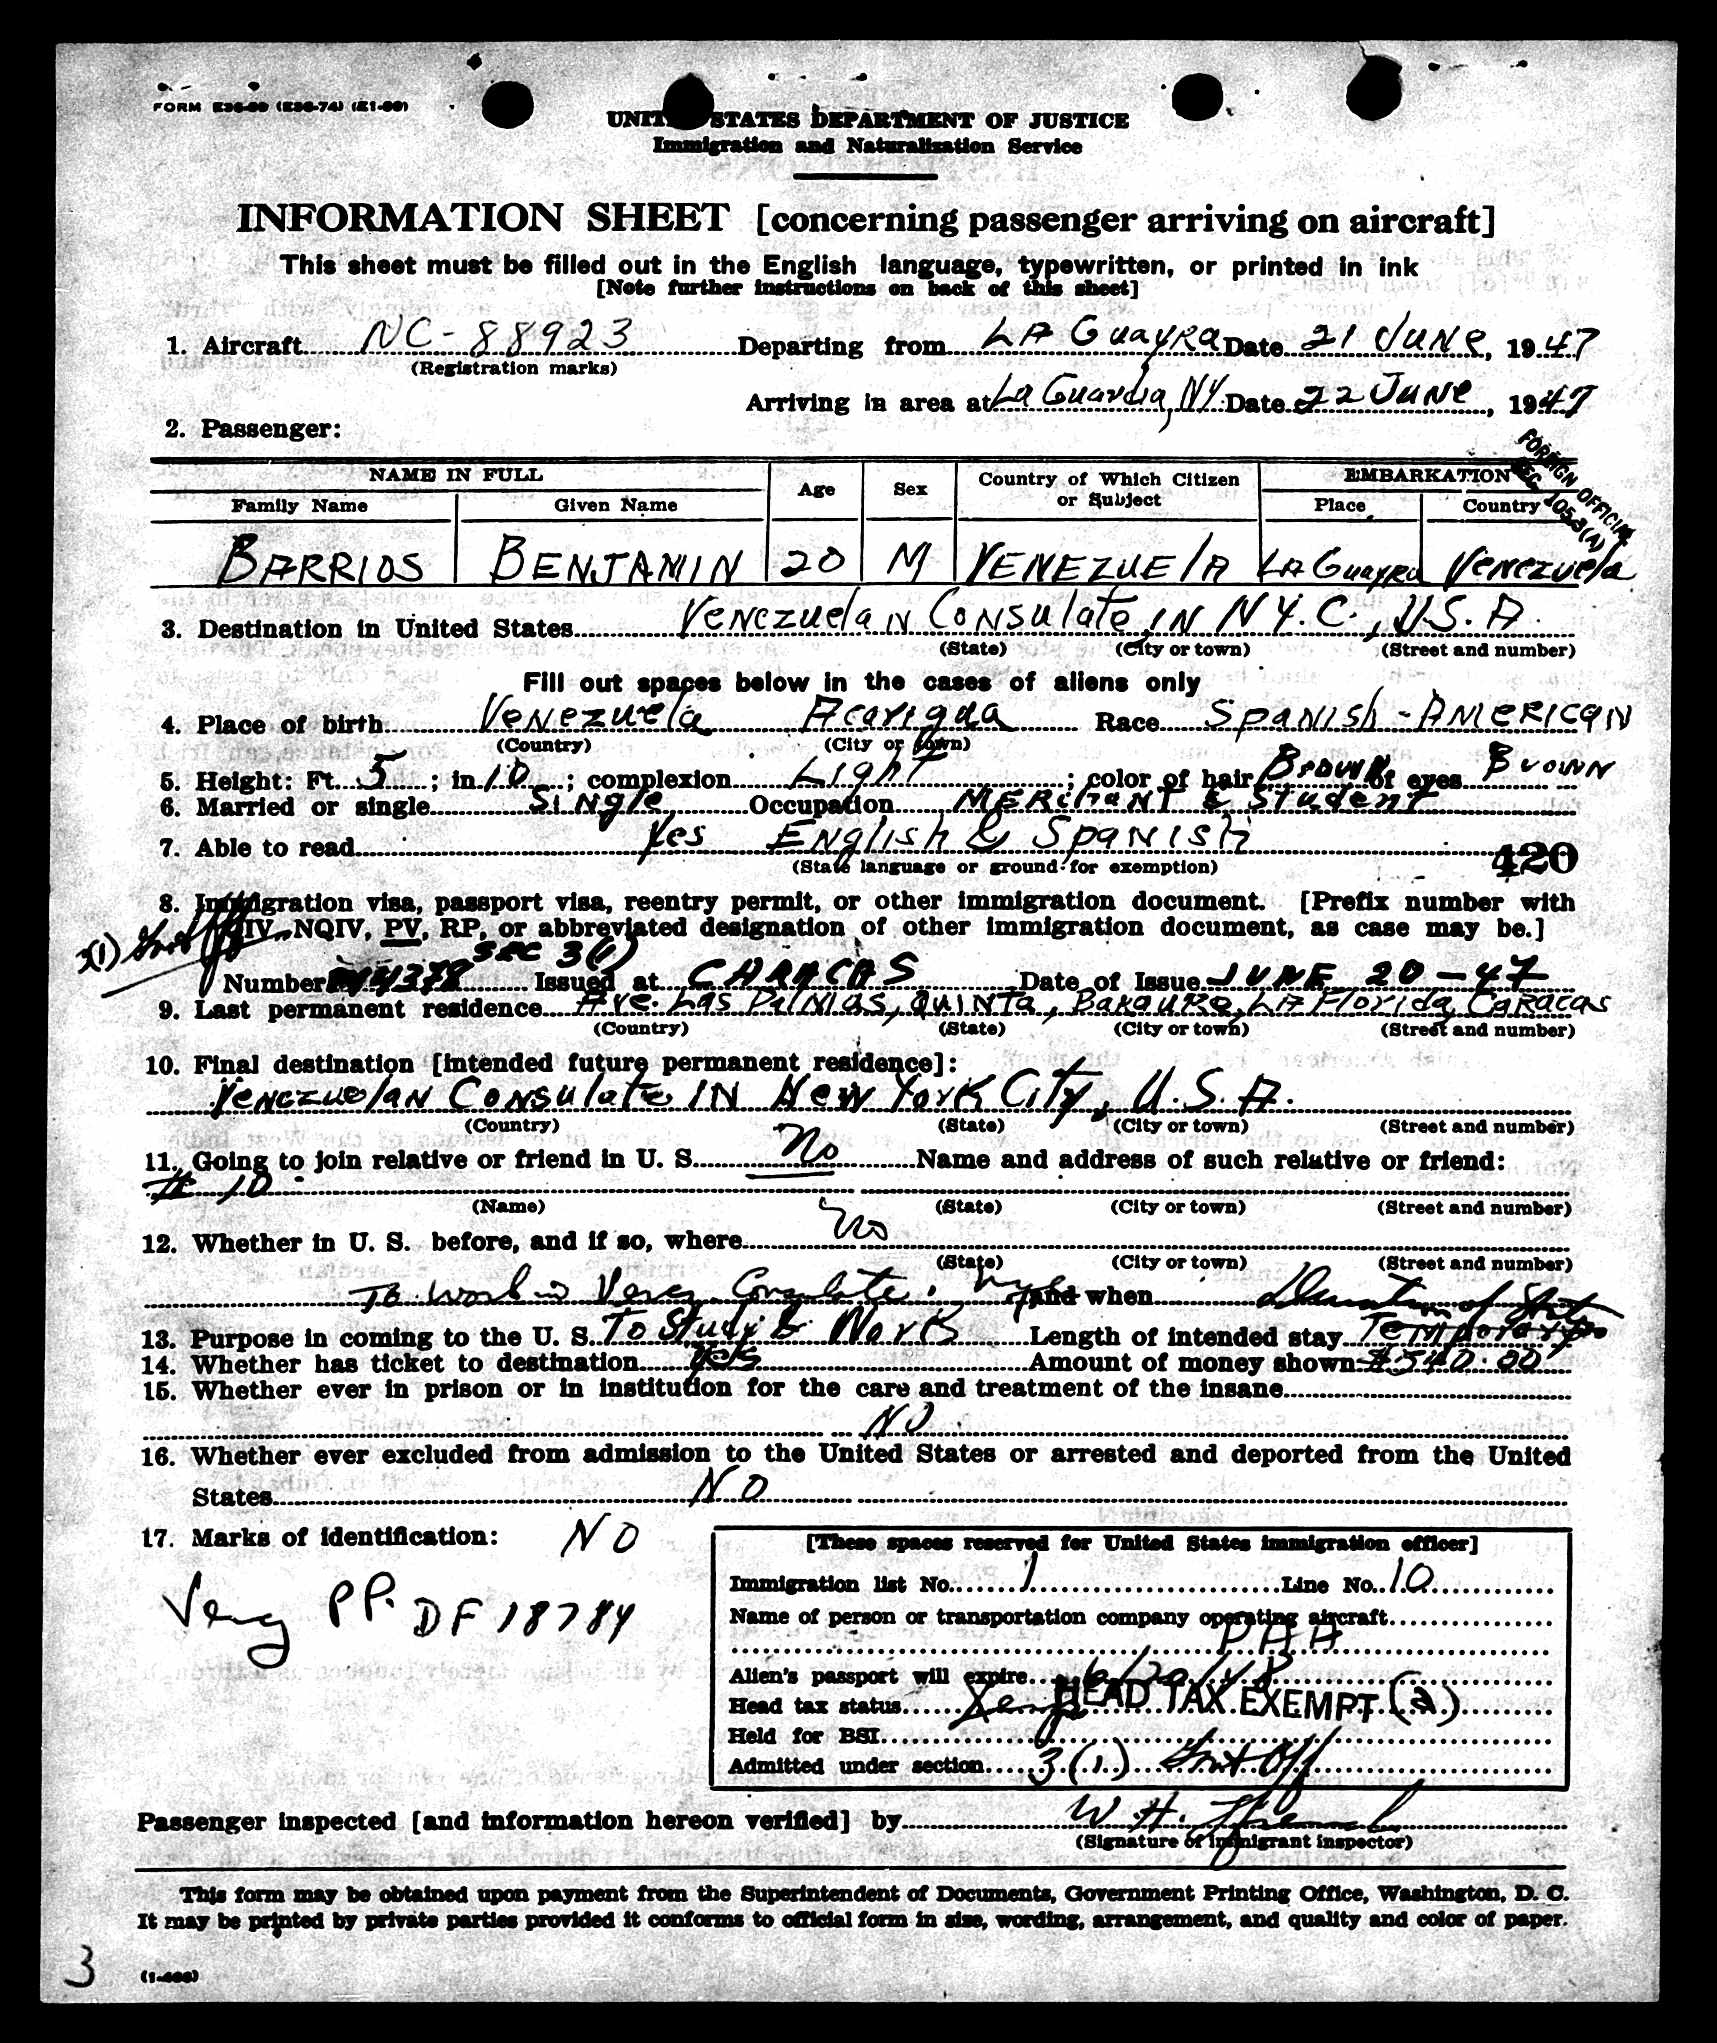 UNITED STATES DEPARTMENT OF JUSTICE
Immigration and Naturalization Service
INFORMATION SHEET [concerning passenger arriving on aircraft]
This sheet must be filled out in the English language, typewritten, or printed in ink
[Note further instructions on back of this sheet]
1. Aircraft NC-88923 Departing from LA GuayRa Date 21 JUNE, 1947
(Registration marks)
Arriving in area at La Guardia, NY. Date 22 JUNE, 1947
2. Passenger:
FOREIGN OFFICIAL
SEC. 105.3(A)
NAME IN FULL Age Sex Country of Which Citizen or Subject EMBARKATION
Family Name Given Name Place Country
BARRIOS BENJAMIN 20 M VENEZUELA LA GuayRa Venezuela
3. Destination in United States Venezuelan Consulate, in N.Y.C., U.S.A.
(State) (City or town) (Street and number)
Fill out spaces below in the cases of aliens only
4. Place of birth Venezuela Acarigua Race Spanish-American
(Country) (City or town)
5. Height: Ft. 5; in 10; complexion Light; color of hair Brown of eyes Brown
6. Married or single Single Occupation MERchanT & Student
7. Able to read Yes English & Spanish
(State language or ground for exemption)
420
8. Immigration visa, passport visa, reentry permit, or other immigration document. [Prefix number with
IV, NQIV, PV, RP, or abbreviated designation of other immigration document, as case may be.]
3(1)
SEC 3(1)
Number Issued at CARACAS Date of Issue JUNE 20-47
9. Last permanent residence Ave. Las Palmas, QUINTA, LA Florida, Caracas
(Country) (State) (City or town) (Street and number)
10. Final destination [intended future permanent residence]:
Venezuelan Consulate IN New York City, U.S.A.
(Country) (State) (City or town) (Street and number)
11. Going to join relative or friend in U. S. No Name and address of such relative or friend:
# 10
(Name) (State) (City or town) (Street and number)
12. Whether in U. S. before, and if so, where No
(State) (City or town) (Street and number)
To work in Venez. Consulate, NYC and when Duration of Stat
13. Purpose in coming to the U. S. To Study & Work Length of intended stay Temporary
14. Whether has ticket to destination Yes Amount of money shown $540.00
15. Whether ever in prison or in institution for the care and treatment of the insane
NO
16. Whether ever excluded from admission to the United States or arrested and deported from the United
States NO
17. Marks of identification: NO
Venz PP. DF 18784
[These spaces reserved for United States immigration officer]
Immigration list No. 1 Line No. 10
Name of person or transportation company operating aircraft
PAA
Alien's passport will expire 6/20/48
Head tax status HEAD TAX EXEMPT (a)
Held for BSI
Admitted under section 3(1) Gov't Off
Passenger inspected [and information hereon verified] by W.H.
(Signature of immigrant inspector)
This form may be obtained upon payment from the Superintendent of Documents, Government Printing Office, Washington, D. C.
It may be printed by private parties provided it conforms to official form in size, wording, arrangement, and quality and color of paper.
3